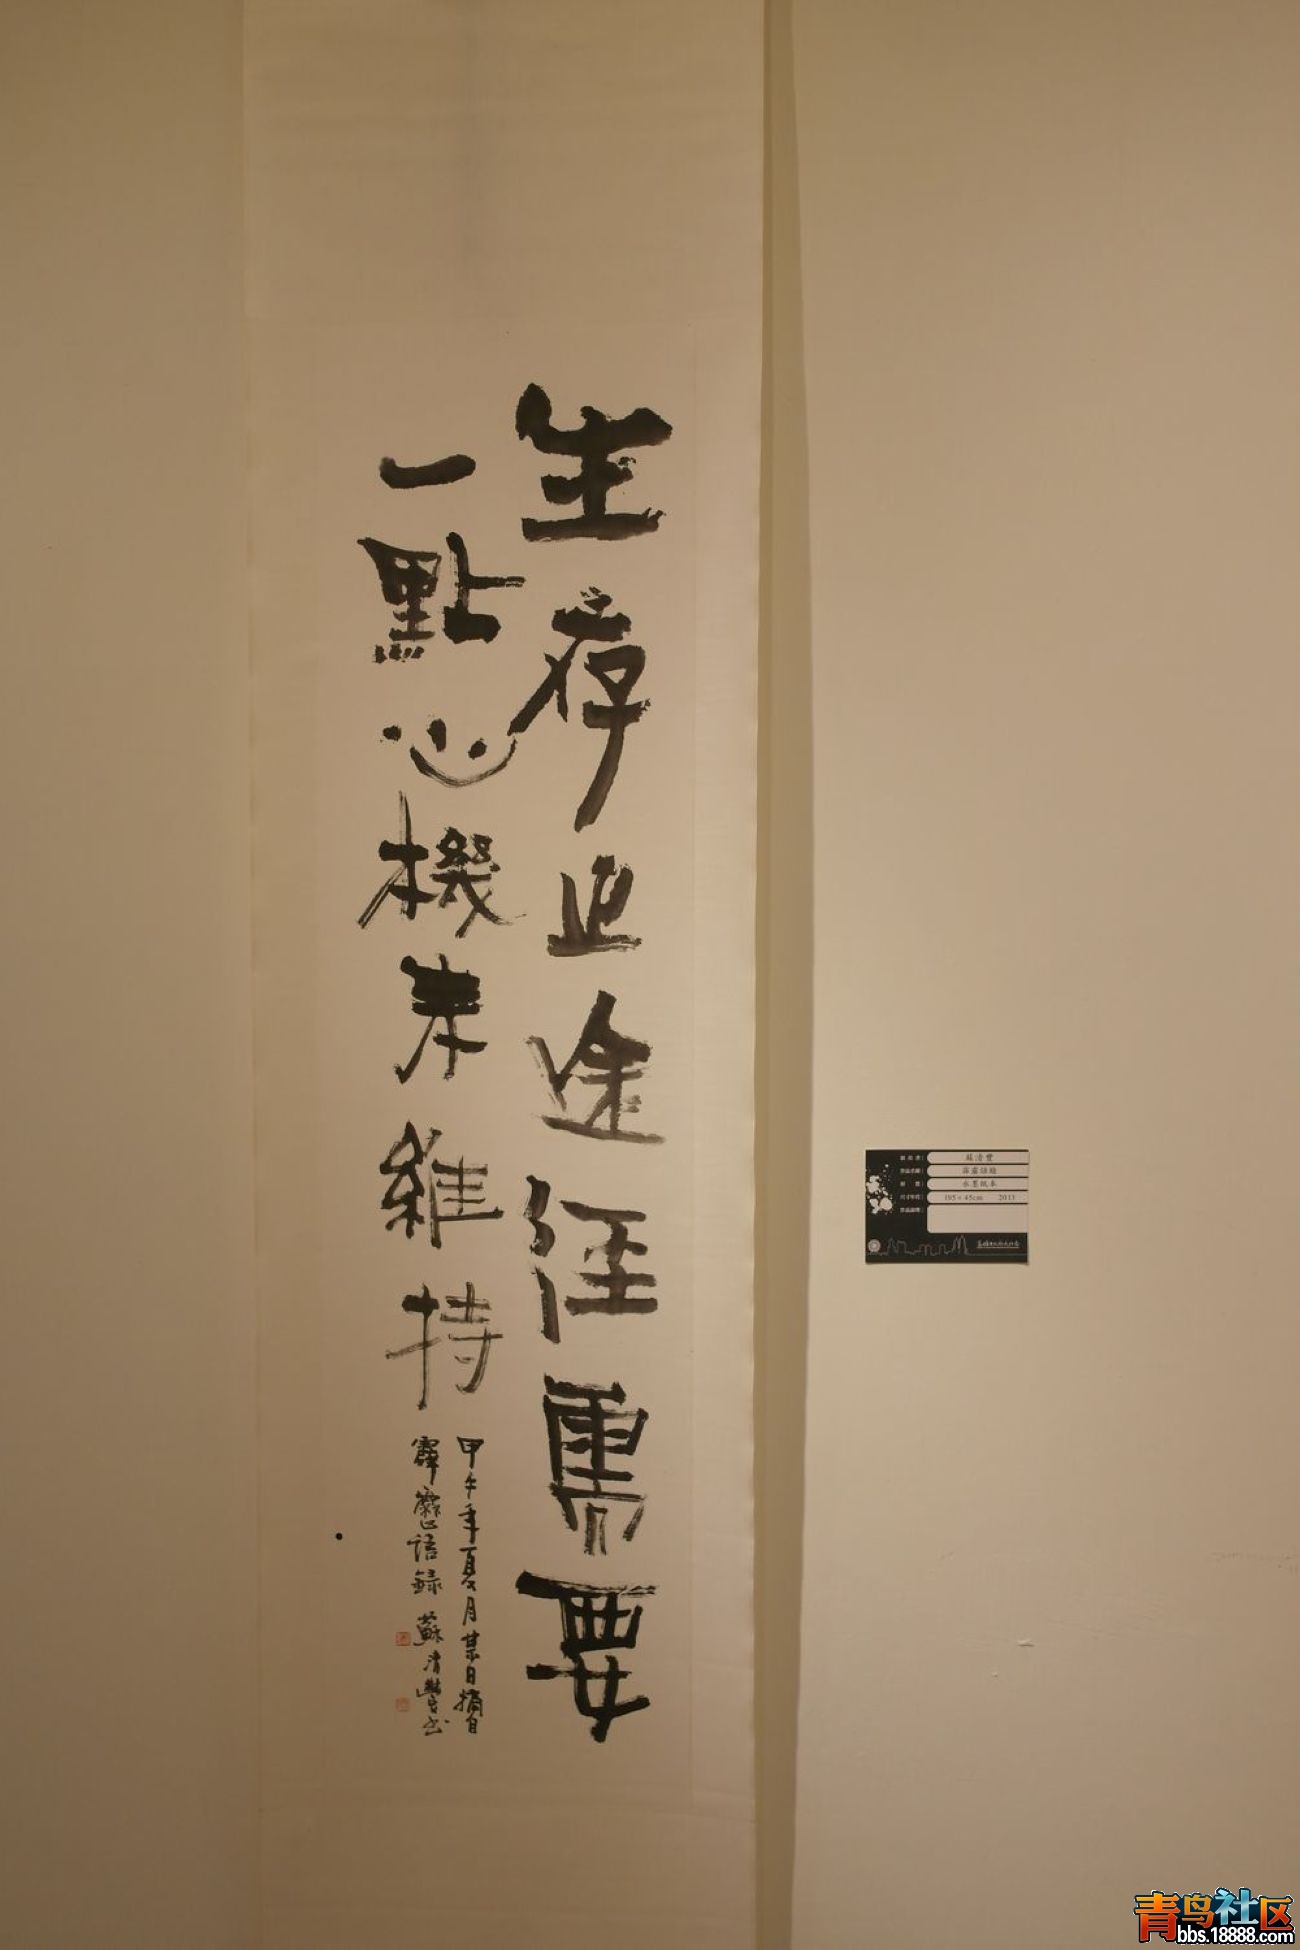 生存止途徑需要
一點心機來維持
甲午年夏月某日摘自
霹靂語錄 蘇清豐書
蘇清豐
霹靂語錄
水墨紙本
195×45cm 2013
青鸟社区
bbs.18888.com